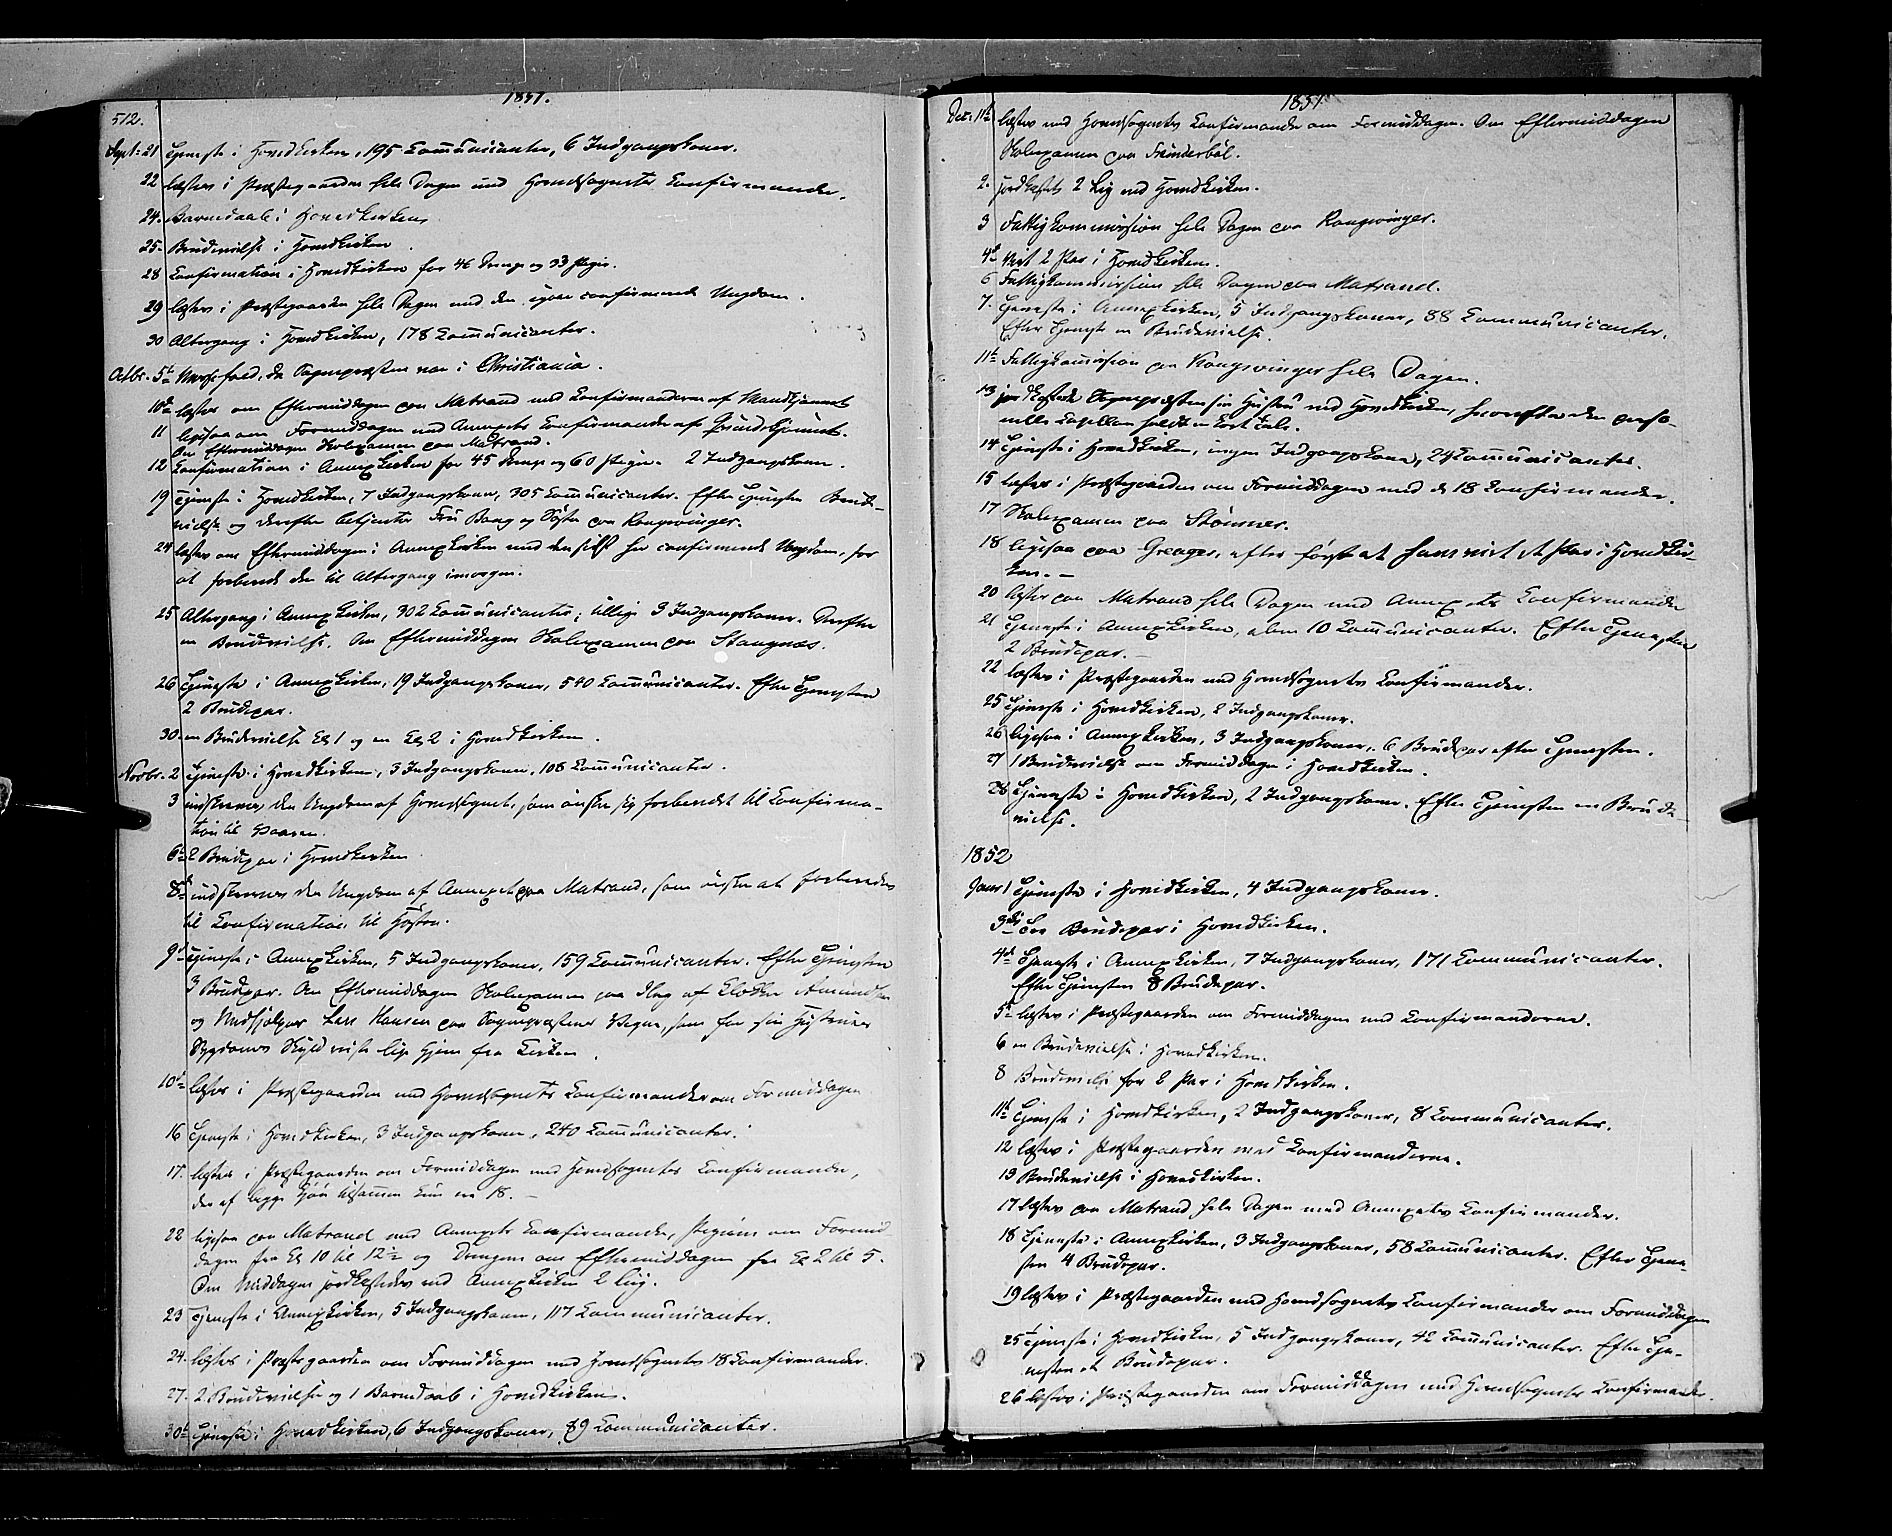 512.
1851.
Sept: 21 Tjeneste i Hovedkirken, 195 Communicanter, 6 Indgangskoner.
22 læstes i Præstegaarden hele Dagen med Hovedsognets Confirmander.
24. Barnedaab i Hovedkirken
25. Brudevielse i Hovedkirken
28 Confirmation i Hovedkirken for 46 Drenge og 33 Piger.
29 læstes i Præstegaarden hele Dagen med den igaar confirmerede Ungdom.
30 Altergang i Hovedkirken, 178 Communicanter.
Octbr. 5te Messefald, da Sognepræsten var i Christiania.
10de læstes om Eftermiddagen paa Matrand med Confirmanderne af Mandkjønnet
11 ligesaa om Formiddagen med Annexets Confirmander af Qvindekjønnet.
Om Eftermiddagen Skolexamen paa Matrand.
12 Confirmation i Annexkirken for 45 Drenge og 60 Piger. 2 Indgangskoner.
19 Tjeneste i Hovedkirken, 7 Indgangskoner, 305 Communicanter. Efter Tjenesten Brude-
vielse og derefter betjentes Fru Bang og Søster paa Kongsvinger.
24 læstes om Eftermiddagen i Annexkirken med den sidst her confirmerede Ungdom, for
at forberede den til Altergang imorgen.
25 Altergang i Annexkirken, 302 Communicanter; tillige 3 Indgangskoner. Derefter
en Brudevielse. Om Eftermiddagen Skolexamen paa Stangnæs.
26 Tjeneste i Annexkirken, 19 Indgangskoner, 540 Communicanter. Efter Tjenesten
2 Brudepar.
30. en Brudevielse Kl 1 og en Kl 2 i Hovedkirken.
Novbr. 2 Tjeneste i Hovedkirken, 3 Indgangskoner, 108 Communicanter.
3 indskreves den Ungdom af Hovedsognet, som ønsker sig forberedet til Confirma-
tion til Vaaren.
6te 2 Brudepar i Hovedkirken.
8de indskreves den Ungdom af Annexet paa Matrand, som ønsker at forberedes
til Confirmation til Høsten.
9de Tjeneste i Annexkirken, 5 Indgangskoner, 159 Communicanter. Efter Tjenesten
3 Brudepar. Om Eftermiddagen Skolexamen paa af Klokker Amundsen
og Medhjælper Lars Hansen paa Sognepræstens Vegne, som for sin Hustrues
Sygdoms Skyld reiste lige hjem fra Kirken.
10de læstes i Præstegaarden med Hovedsognets Confirmander om Formiddagen
16 Tjeneste i Hovedkirken, 3 Indgangskoner, 240 Communicanter.
17. læstes i Præstegaarden om Formiddagen med Hovedsognets Confirmander,
der af begge Kjøn tilsammen kun ere 18. –
22 ligesaa paa Matrand med Annexets Confirmander, Pigerne om Formid-
dagen fra Kl 10 til 12½ og Drengene om Eftermiddagen fra Kl 2 til 5.
Om Middagen jordkastedes ved Annexkirken 2 Liig.
23 Tjeneste i Annexkirken, 5 Indgangskoner, 117 Communicanter.
24. læstes i Præstegaarden om Formiddagen med Hovedsognets 18 Confirmander.
27. 2 Brudevielser og 1 Barnedaab i Hovedkirken.
30te Tjeneste i Hovedkirken, 6 Indgangskoner, 89 Communicanter.
1851.
Dec: 1ste læstes med Hovedsognets Confirmander om Formiddagen. Om Eftermiddagen
Skolexamen paa
2. jordkastet 2 Lig ved Hovedkirken.
3 Fattigkommission hele Dagen paa Kongsvinger.
4de viet 2 Par i Hovedkirken.
6 Fattigkommission hele Dagen paa Matrand.
7. Tjeneste i Annexkirken, 5 Indgangskoner, 88 Communicanter.
Efter Tjeneste en Brudevielse.
11te Fattigkommission paa Kongsvinger hele Dagen.
13 jordkastede Sognepræsten sin Hustru ved Hovedkirken, hvorefter den perso-
nelle Capellan holdt en kort Tale.
14 Tjeneste i Hovedkirken, ingen Indgangskone, 24 Communicanter.
15 læstes i Præstegaarden om Formiddagen med de 18 Confirmander.
17 Skolexamen paa Stømner.
18 ligesaa paa Greager, efter først at have viet et Par i Hovedkir-
ken. –
20 læstes paa Matrand hele Dagen med Annexets Confirmander
21 Tjeneste i Annexkirken, alene 10 Communicanter. Efter Tjenesten
2 Brudepar. –
22 læstes i Præstegaarden med Hovedsognets Confirmander.
25 Tjeneste i Hovedkirken, 2 Indgangskoner.
26 ligesaa i Annexkirken, 3 Indgangskoner, 6 Brudepar efter Tjenesten.
27 1 Brudevielse om Formiddagen i Hovedkirken.
28 Tjeneste i Hovedkirken, 2 Indgangskoner. Efter Tjenesten en Brude-
vielse.
1852
Janr 1 Tjeneste i Hovedkirken, 4 Indgangskoner.
3die Brudepar i Hovedkirken.
4de Tjeneste i Annexkirken, 7 Indgangskoner, 171 Communicanter.
Efter Tjenesten 8 Brudepar.
5te læstes i Præstegaarden om Formiddagen med Confirmanderne.
6 en Brudevielse i Hovedkirken.
8 Brudevielse for 2 Par i Hovedkirken.
11te Tjeneste i Hovedkirken, 2 Indgangskoner, 8 Communicanter.
12 læstes i Præstegaarden med Confirmanderne.
13 Brudevielse i Hovedkirken.
17 læstes paa Matrand hele Dagen med Annexets Confirmander.
18 Tjeneste i Annexkirken, 3 Indgangskoner, 58 Communicanter. Efter Tjene-
sten 4 Brudepar.
19 læstes i Præstegaarden med Hovedsognets Confirmander om Formiddagen
25 Tjeneste i Hovedkirken, 5 Indgangskoner, 42 Communicanter. Efter Tje-
nesten et Brudepar.
26 læstes i Præstegaarden om Formiddagen med Hovedsognets Confirmander.